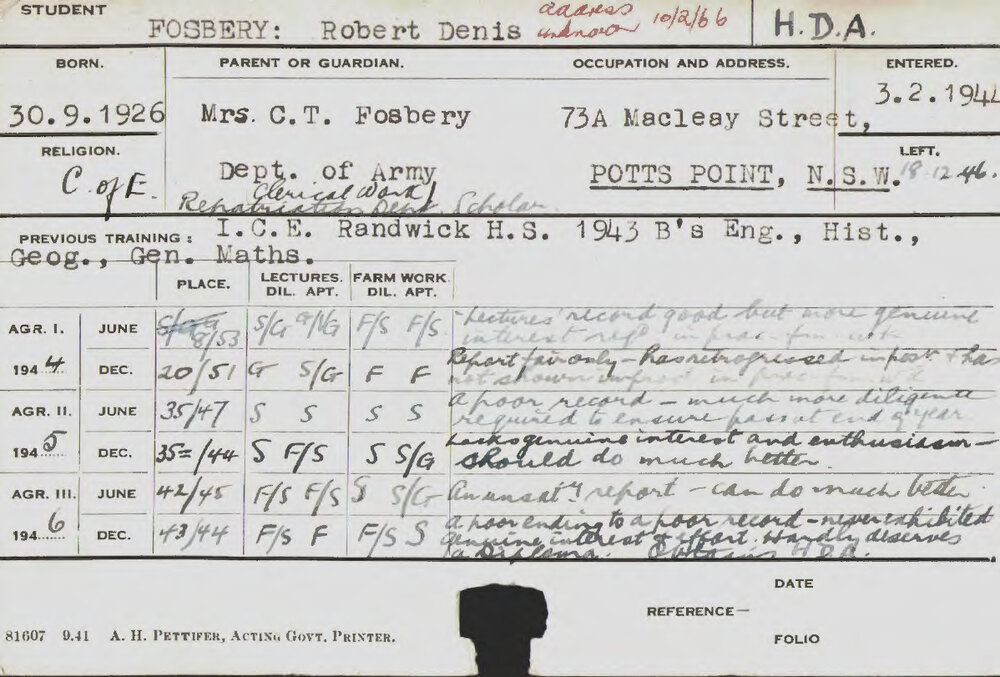 STUDENT
FOSBERY: Robert Denis address unknown 10/2/66 H.D.A.
BORN. PARENT OR GUARDIAN. OCCUPATION AND ADDRESS. ENTERED.
30.9.1926 Mrs. C.T. Fosbery 73A Macleay Street, 3.2.1944
RELIGION. LEFT.
C. of E. Dept. of Army POTTS POINT, N.S.W. 18.12.46.
Clerical Work
Repatriation Dept. Scholar.
PREVIOUS TRAINING: I.C.E. Randwick H.S. 1943 B's Eng., Hist.,
Geog., Gen. Maths.
PLACE. LECTURES. FARM WORK.
DIL. APT. DIL. APT.
AGR. I. JUNE 8/53 S/G G/VG F/S F/S Lectures record good but more genuine
interest req'd in prac. fm wk
1944 DEC. 20/51 G S/G F F Report fair only - has retrogressed in post & has
not shown in prac. fm wk
AGR. II. JUNE 35/47 S S S S A poor record - much more diligence
required to ensure pass at end of year
1945 DEC. 35=/44 S F/S S S/G Lacks genuine interest and enthusiasm -
should do much better.
AGR. III. JUNE 42/45 F/S F/S S S/G An unsat'y report - can do much better.
1946 DEC. 43/44 F/S F F/S S A poor ending to a poor record - never exhibited
genuine interest & effort. Hardly deserves
a Diploma. Obtains H.D.A.
DATE
REFERENCE—
81607 9.41 A. H. PETTIFER, ACTING GOVT. PRINTER.
FOLIO